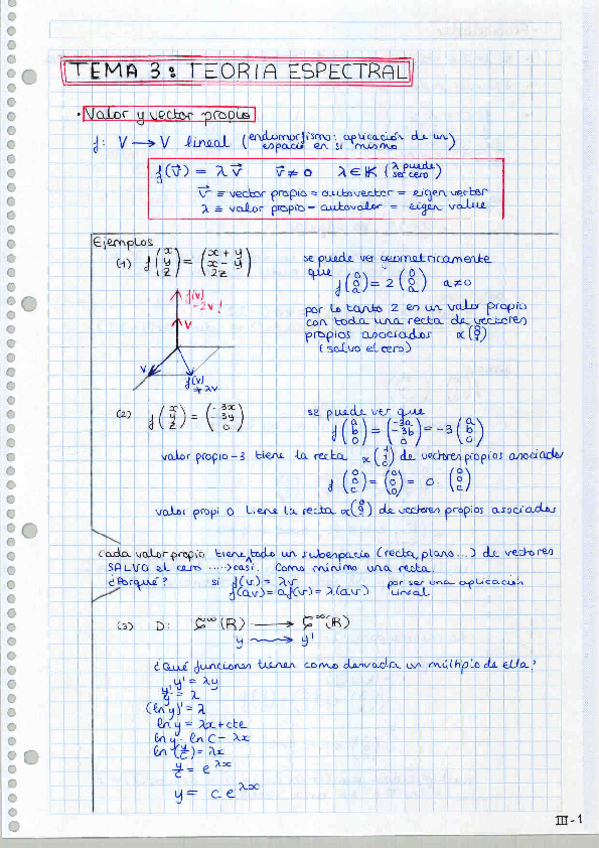 TEMA 3: TEORIA ESPECTRAL
· Valor y vector propio
f: V → V lineal (endomorfismo: aplicación de un espacio en si mismo)
f(v⃗) = λ v⃗   v⃗ ≠ 0   λ ∈ K (λ puede ser cero)
v⃗ ≡ vector propio = autovector = eigen vector
λ ≡ valor propio - autovalor = eigen value
Ejemplos
(1) f (x y z) = (x + y x - y 2z)
se puede ver geometricamente
que f (0 0 a) = 2 (0 0 a) a ≠ 0
por lo tanto 2 es un valor propio
con toda una recta de vectores
propios asociados
(salvo el cero)
f(v)
= 2v!
v
v
f(v)
≠ λv
(2) f (x y z) = (-3x -3y 0)
se puede ver que
f (a b 0) = (-3a -3b 0) = -3 (a b 0)
valor propio -3 tiene la recta de vectores propios asociados
f (0 0 c) = (0 0 0) = 0 · (0 0 c)
valor propi 0 tiene la recta de vectores propios asociados
cada valor propio tiene todo un subespacio (recta, plano...) de vectores
SALVO el cero ....→ casi. Como mínimo una recta.
¿Porqué? si f(v) = λv por ser una aplicación
f(av) = af(v) = λ(av) lineal
(3) D: C∞(R) → C∞(R)
y → y'
¿Qué funciones tienen como derivada un múltiplo de ella?
y' = λy
y'/y = λ
(ln y)' = λ
ln y = λx + cte
ln y - ln C = λx
ln (y/c) = λx
y/c = e^λx
y = c e^λx
III-1